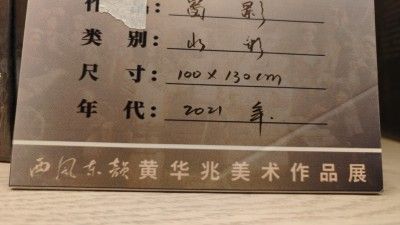 影
类 别: 水彩
尺 寸: 100 x 130cm
年 代: 2021 年.
西风东韵 黄华兆美术作品展